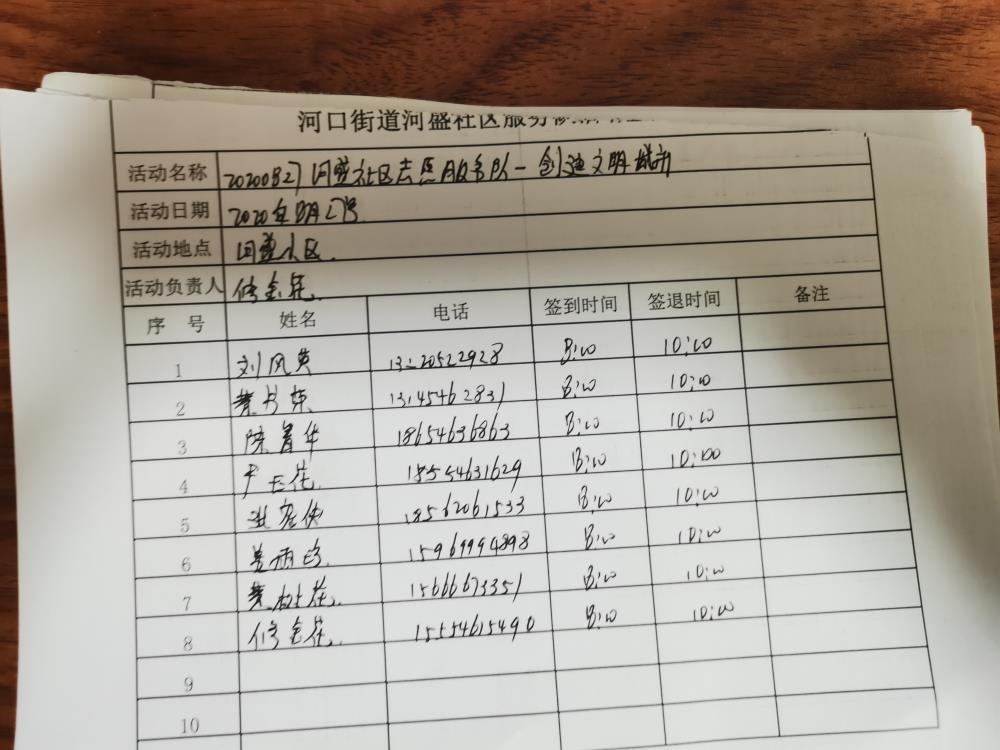 河口街道河盛社区服务
活动名称 20200827河盛社区志愿服务队-创建文明城市
活动日期 2020年8月27号
活动地点 河盛小区.
活动负责人 修金花
序 号 姓名 电话 签到时间 签退时间 备注
1 刘风英 13220522928 8:00 10:00
2 黄书荣 13145462831 8:00 10:00
3 陈春华 18654636863 8:00 10:00
4 18554631629 8:00 10:00
5 18562061533 8:00 10:00
6 15969994898 8:00 10:00
7 15666673351 8:00 10:00
8 修金花 15554615490 8:00 10:00
9
10